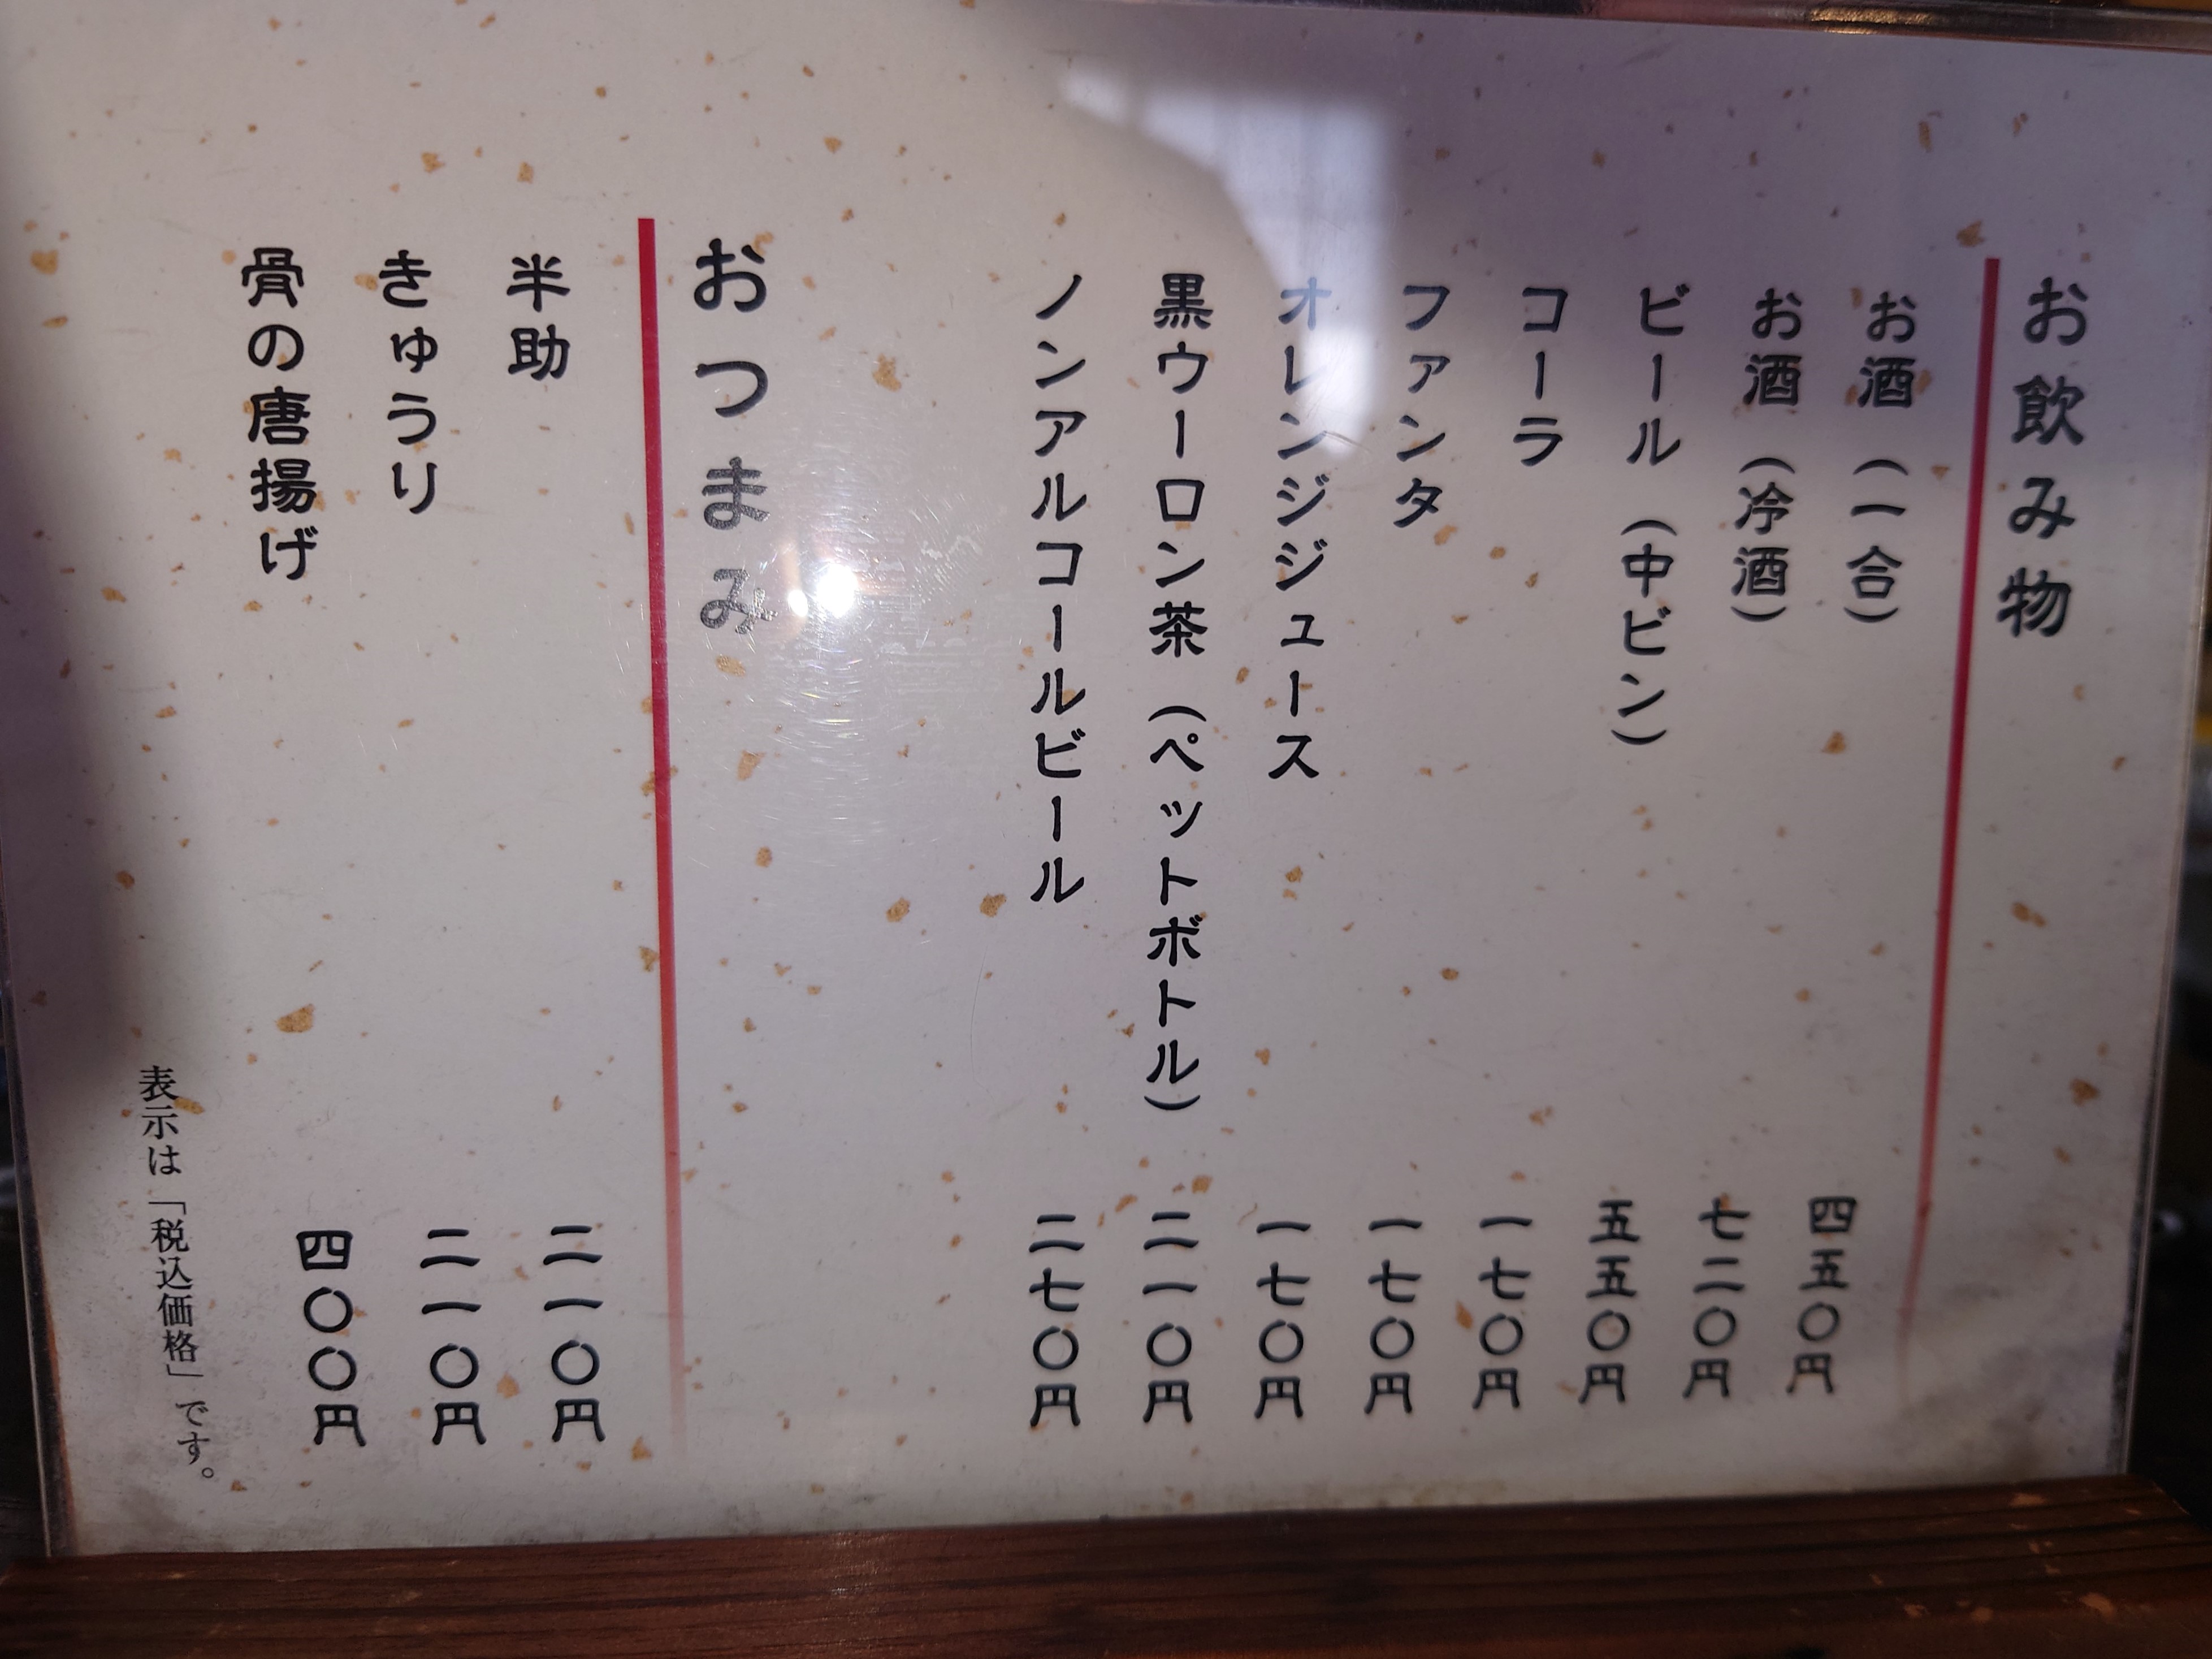 お飲み物
お酒（一合） 四五〇円
お酒（冷酒） 七二〇円
ビール（中ビン） 五五〇円
コーラ 一七〇円
ファンタ 一七〇円
オレンジジュース 一七〇円
黒ウーロン茶（ペットボトル） 二一〇円
ノンアルコールビール 二七〇円
おつまみ
半助 二一〇円
きゅうり 二一〇円
骨の唐揚げ 四〇〇円
表示は「税込価格」です。